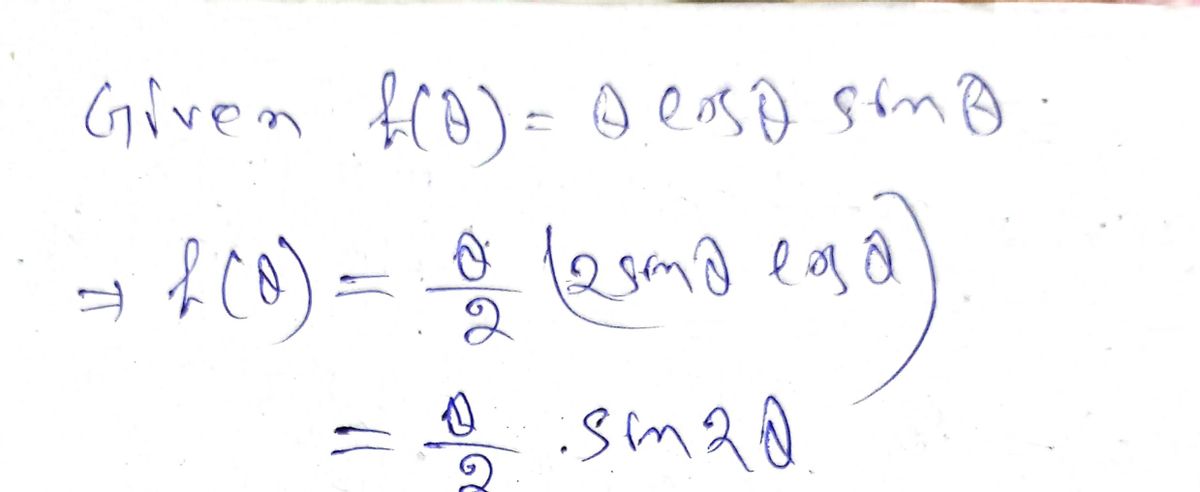 Given f(θ) = θ cosθ sinθ.
⇒ f(θ) = θ/2 (2 sinθ cosθ)
= θ/2 . sin 2θ